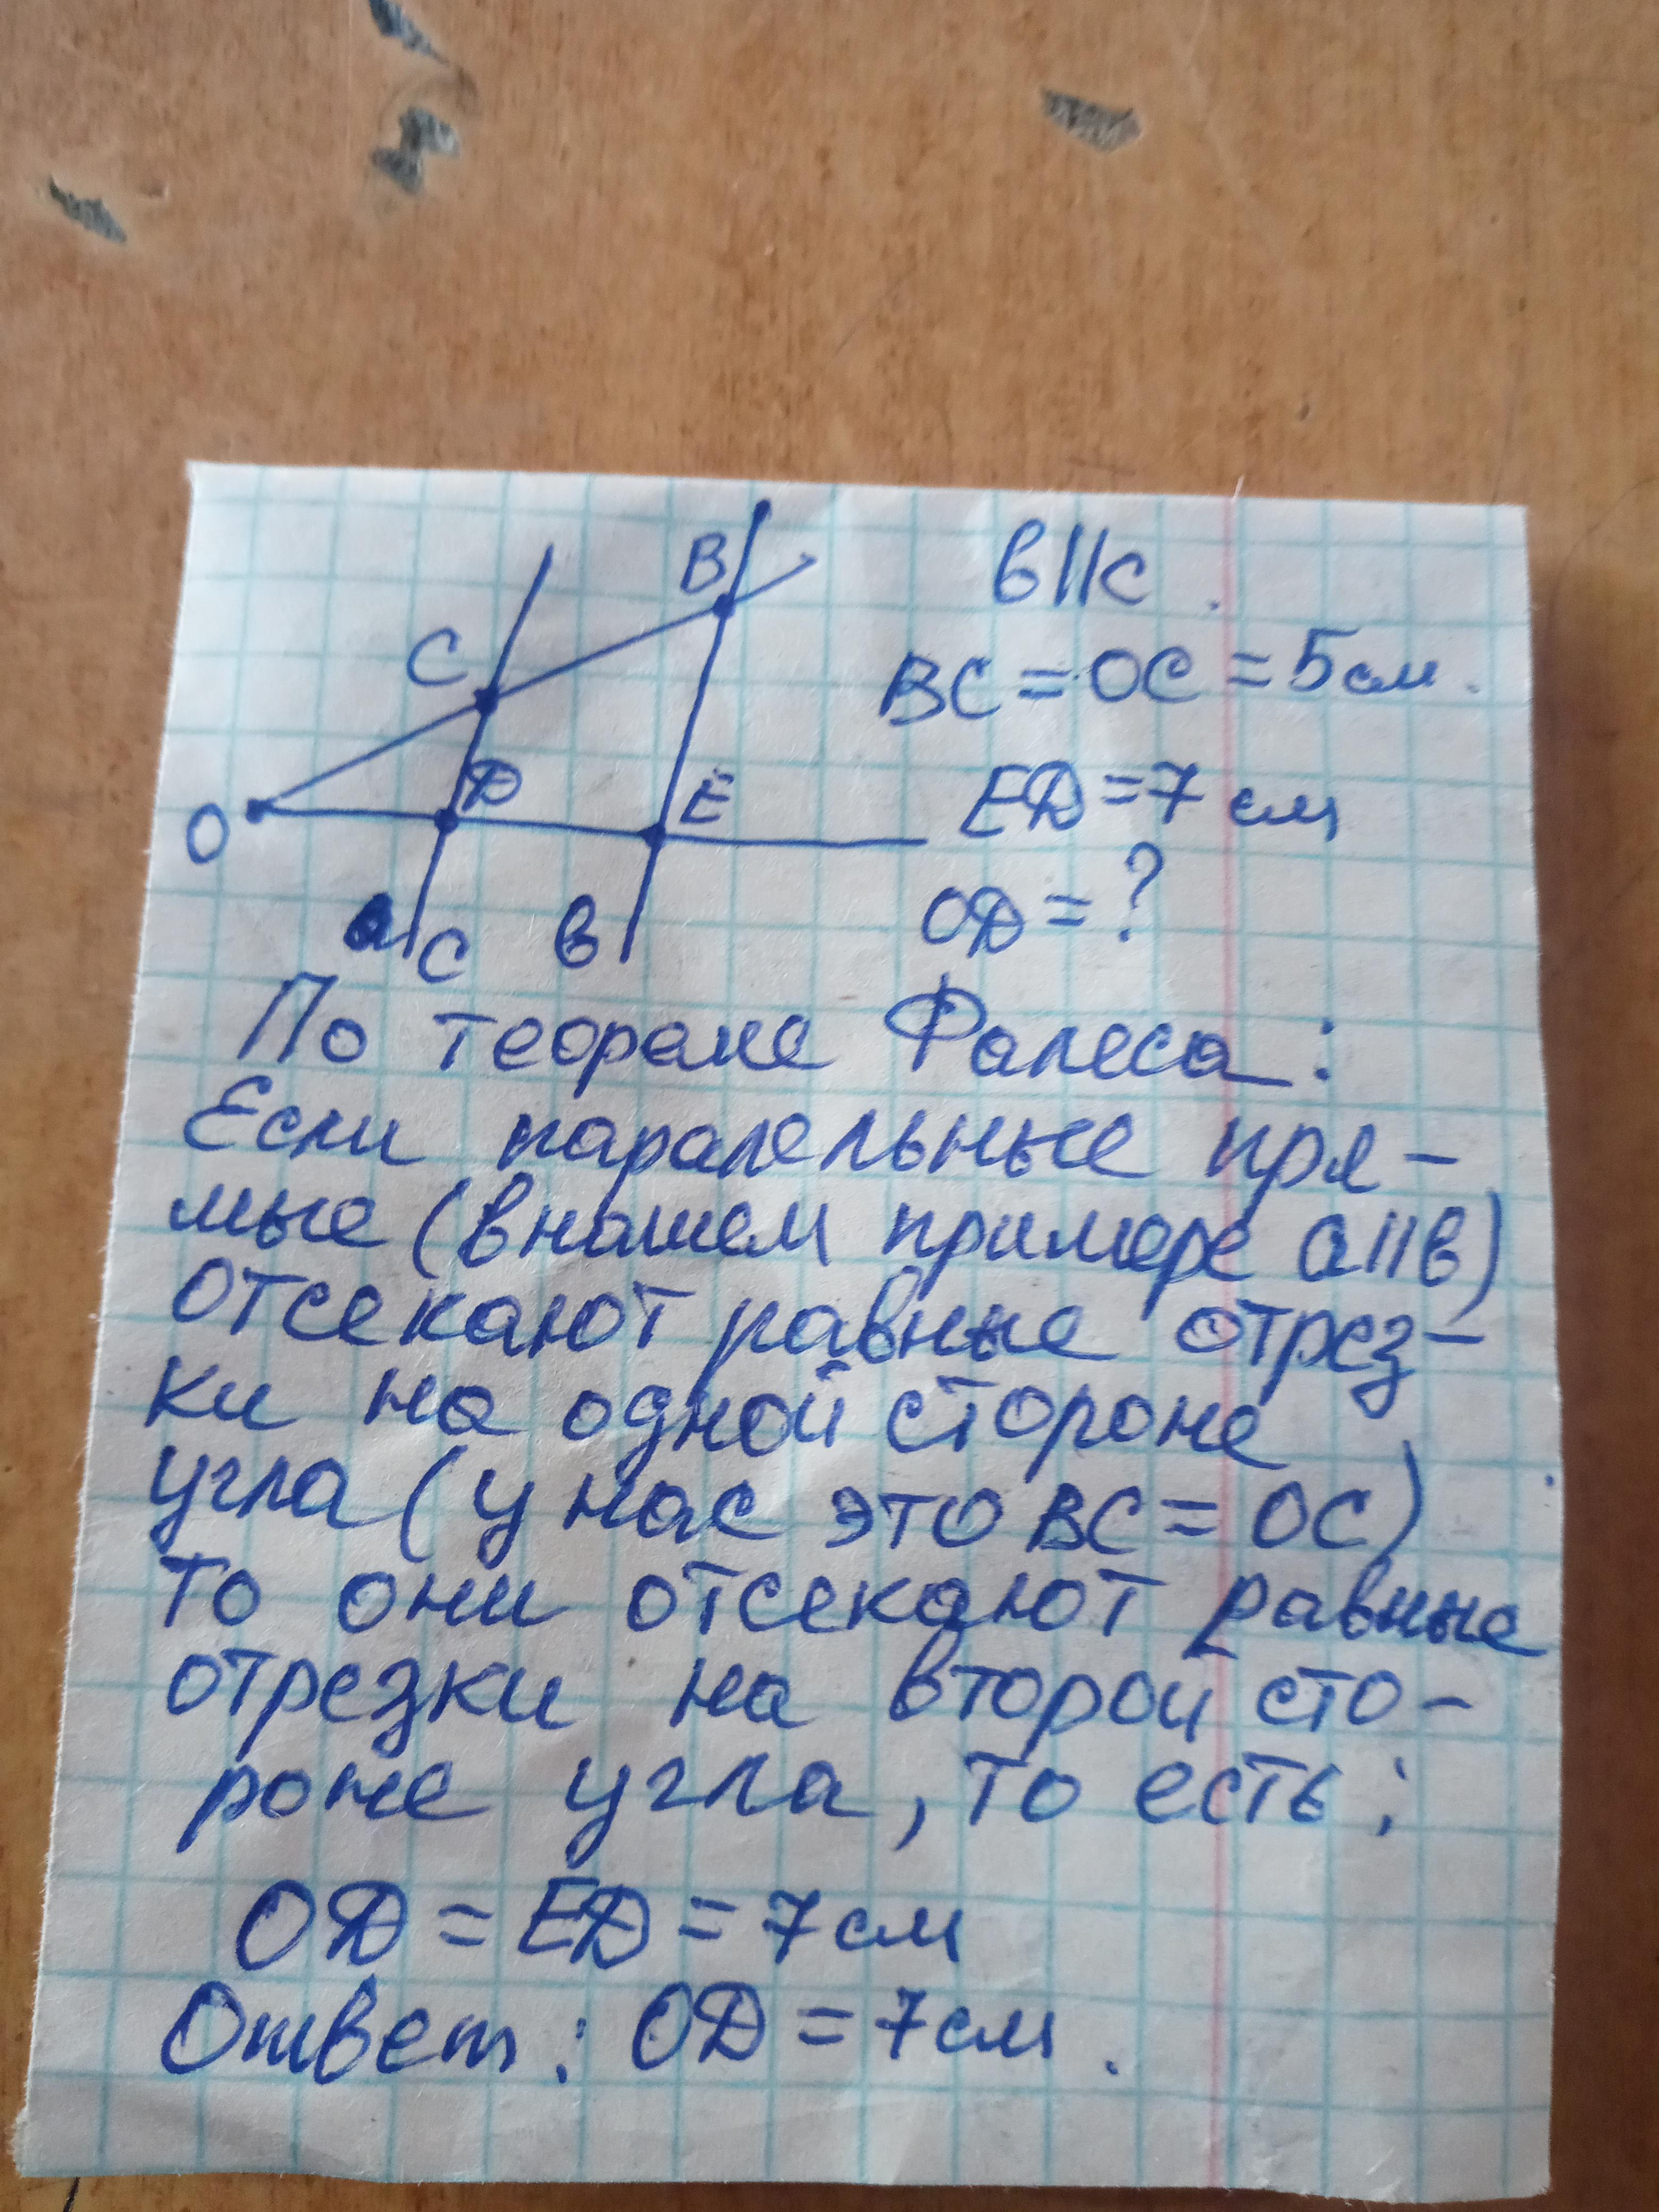 B
b||c.
C
BC = OC = 5 см.
D
E
ED = 7 см
O
OD = ?
c
b
По теореме Фалеса:
Если паралельные пря-
мые (в нашем примере a||b)
отсекают равные отрез-
ки на одной стороне
угла (у нас это BC = OC)
то они отсекают равные
отрезки на второй сто-
роне угла, то есть:
OD = ED = 7 см
Ответ: OD = 7 см.